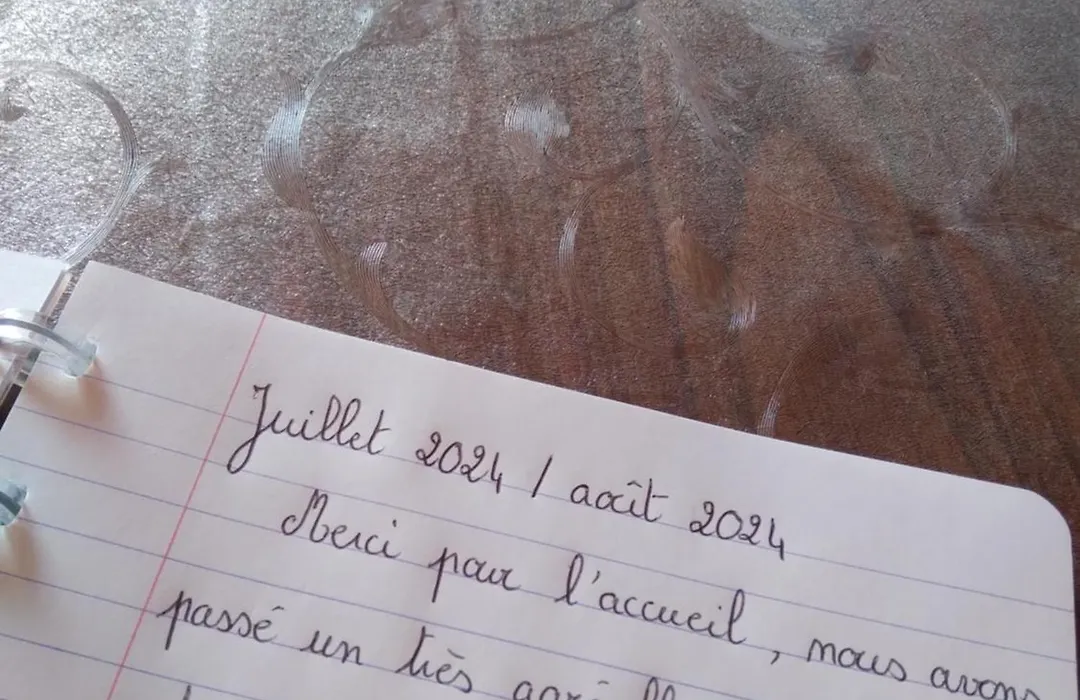 Juillet 2024 / août 2024
Merci pour l'accueil, nous avons
passé un très